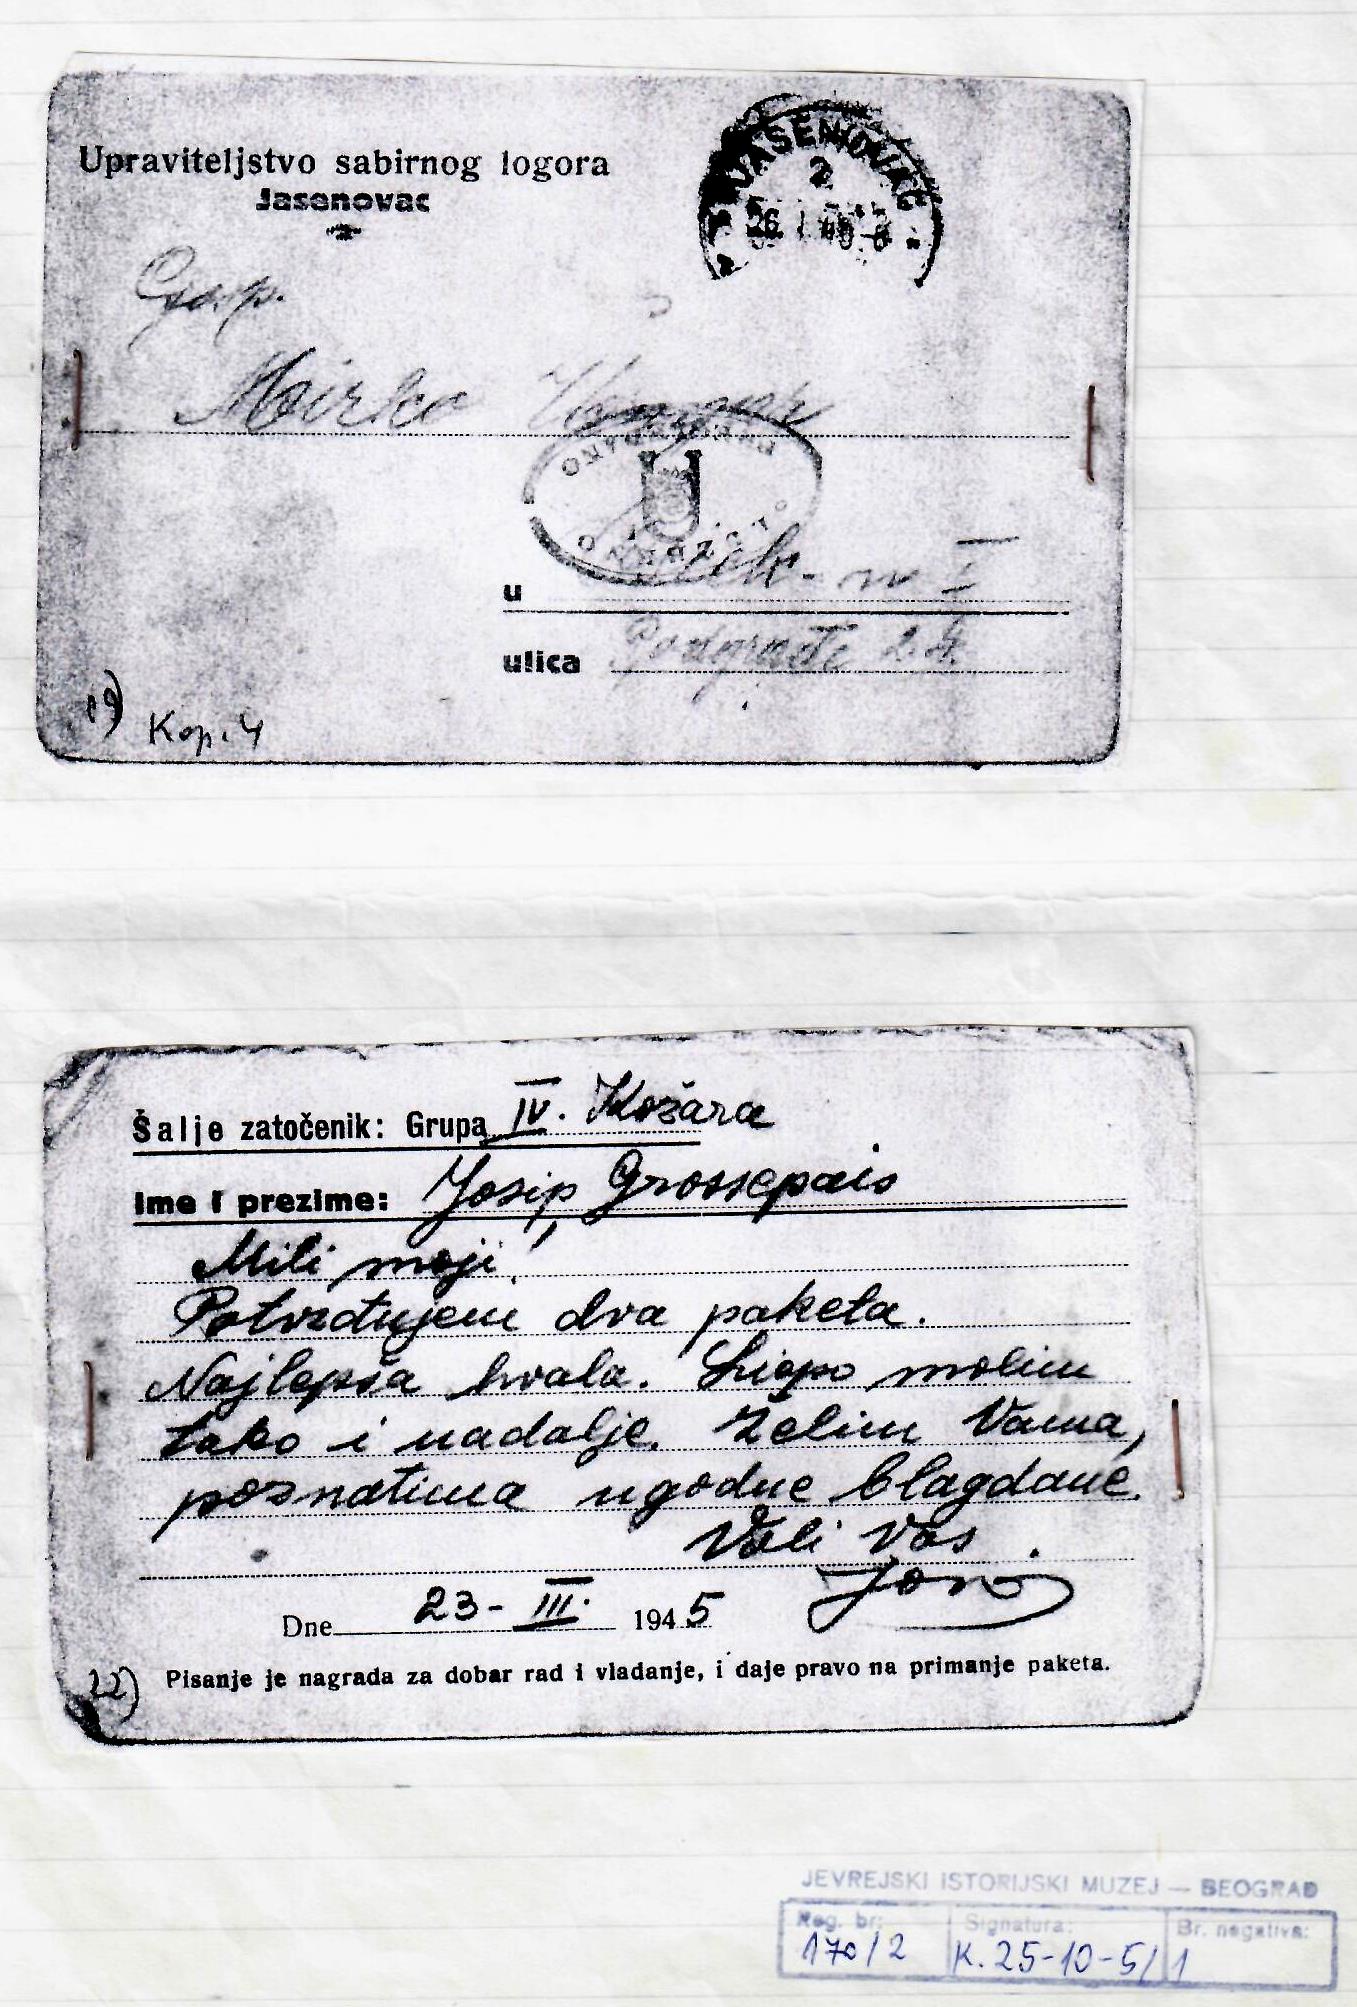 Upraviteljstvo sabirnog logora
Jasenovac
JASENOVAC
2
26. I
Gosp.
Mirko
U
u
ulica Podgrađe
19) Kop. 4
Šalje zatočenik: Grupa IV. Kožara
Ime i prezime: Josip Grossepais
Mili moji!
Potvrđujem dva paketa.
Najlepša hvala. Liepo molim
tako i nadalje. Želim Vama,
poznatima ugodne blagdane.
Voli Vas
Dne 23-III. 1945
22) Pisanje je nagrada za dobar rad i vladanje, i daje pravo na primanje paketa.
JEVREJSKI ISTORIJSKI MUZEJ — BEOGRAD
Reg. br: Signatura: Br. negativa:
170/2 K. 25-10-5/1